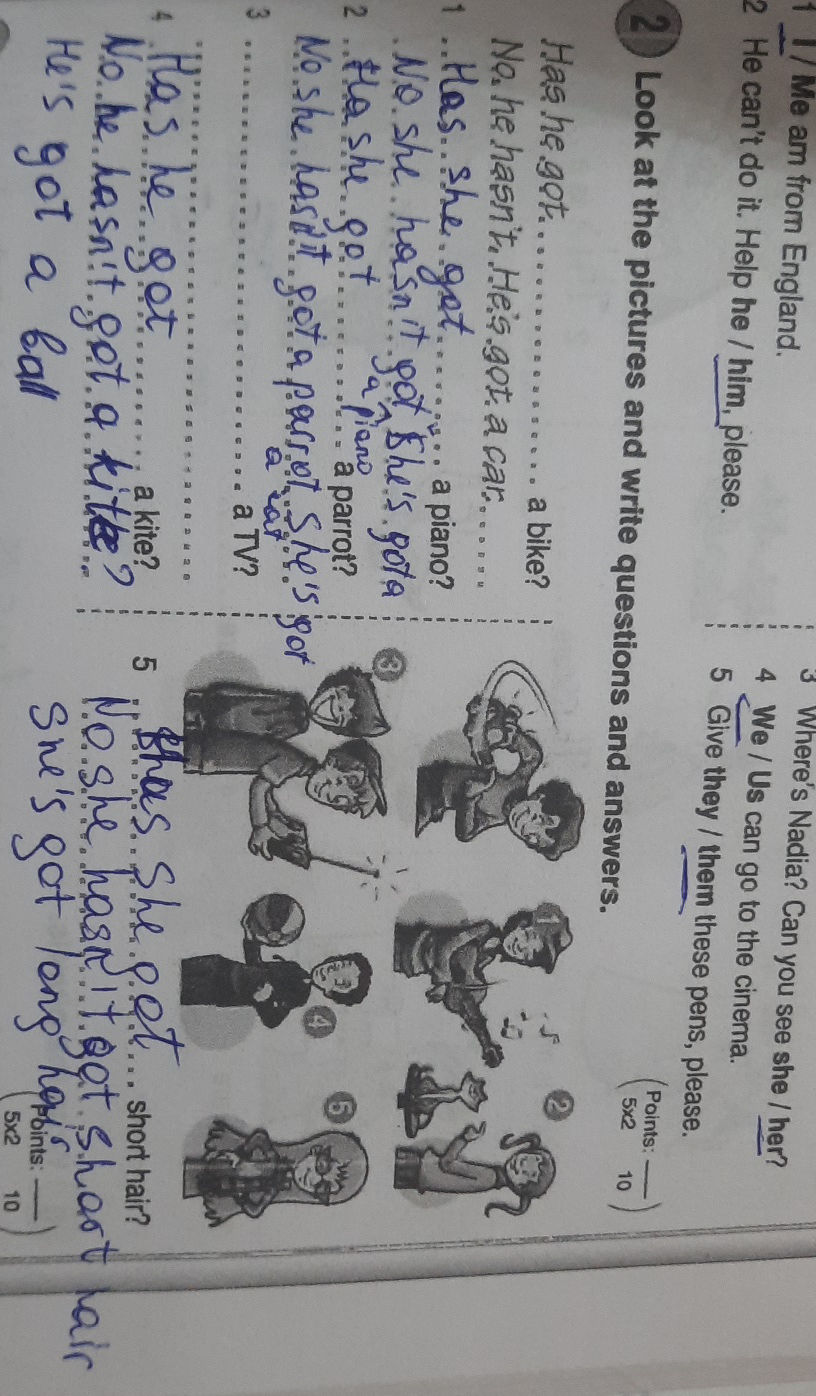 1 I / Me am from England.
2 He can't do it. Help he / him, please.
3 Where's Nadia? Can you see she / her?
4 We / Us can go to the cinema.
5 Give they / them these pens, please.
(Points: ___
5x2 10)
2 Look at the pictures and write questions and answers.
Has he got .................... a bike?
No, he hasn't. He's got a car.
1 Has she got ............ a piano?
No she hasn't got She's got a
a piano
2 Ha she got ............ a parrot?
No she hasn't got a parrot She's got
a cat
3 ................................ a TV?
4 Has he got ............ a kite?
No he hasn't got a kite?
He's got a ball
5 has She got .... short hair?
No she hasn't got short hair
She's got long
(Points: ___
5x2 10)
1
2
3
4
5